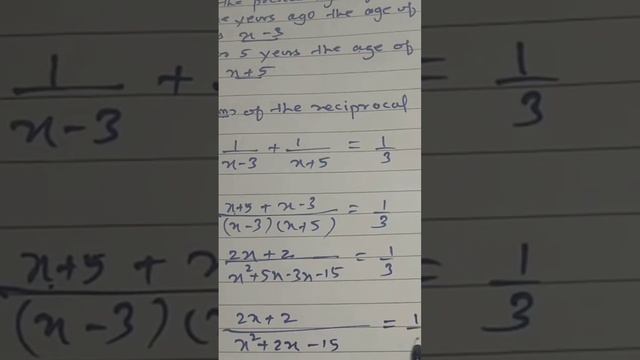 years ago the age of
x-3
5 years the age of
x+5
of the reciprocal
1/(x-3) + 1/(x+5) = 1/3
(x+5 + x-3)/((x-3)(x+5)) = 1/3
(2x+2)/(x²+5x-3x-15) = 1/3
(2x+2)/(x²+2x-15) = 1